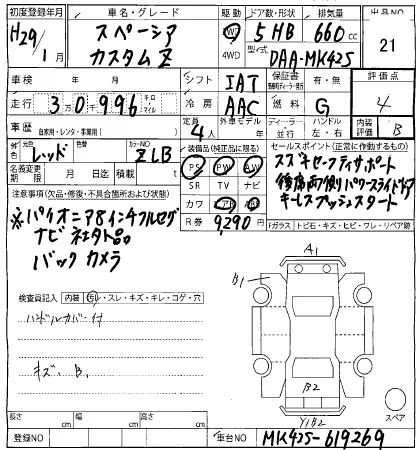 初度登録年月 車名・グレード 駆動 ドア数・形状 排気量 出品NO
H29/1月 スペーシア カスタムZ 2WD 4WD 5HB 660cc 21
型/式 DAA-MK42S
車検 年 月 シフト IAT 保証書 有・無 評価点
走行 3万0千996 キロ・マイル 冷房 AAC 燃料 G 4
車歴 自家用・レンタ・事業用( ) 定員 4人 外車モデル 年 ディーラー・並行 ハンドル 左・右 内装評価 B
外色 レッド 色替 カラーNO ZLB 装備品(純正品に限る) セールスポイント(正常に作動するもの)
名義変更期限 月 日 積載 t PS PW AW スズキセーフティサポート
注意事項(欠品・修復・不具合箇所および状態) SR TV ナビ 後席両側パワースライドドア
※パイオニア8インチフルセグ カワ キーレスプッシュスタート
ナビ社外品 R券 9,290円 Fガラス トビ石・キズ・ヒビ・ワレ・リペア跡
バックカメラ
A1
B1
検査員記入 内装 ヨレ・スレ・キズ・キレ・コゲ・穴
ハンドルカバー付
キズ、B、
B2
スペア
Y1B2
長さ cm 幅 cm 高さ cm
登録NO 車台NO MK42S-619269